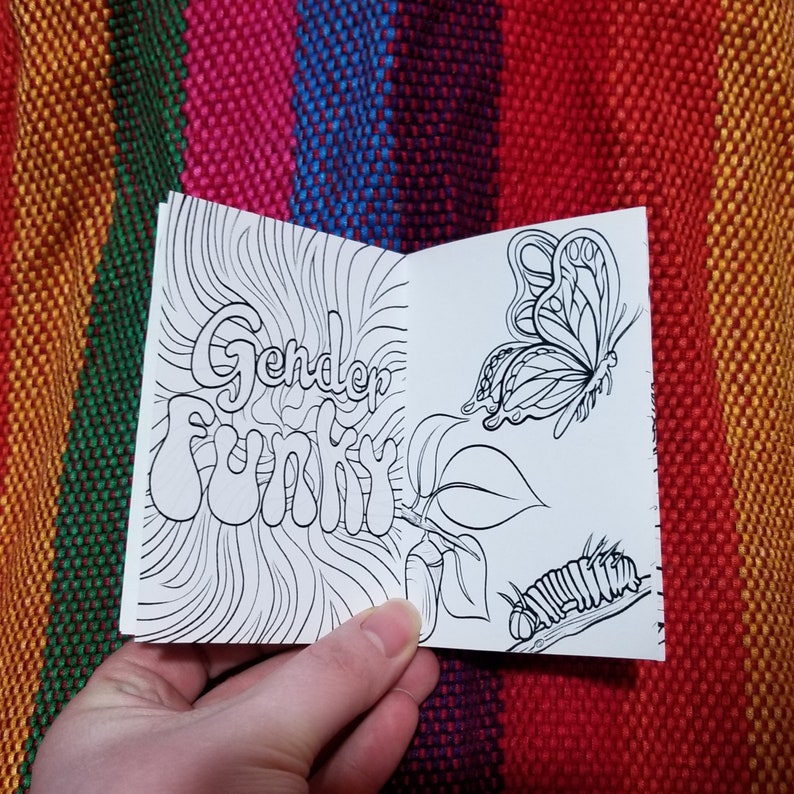 Gender
FUNKY